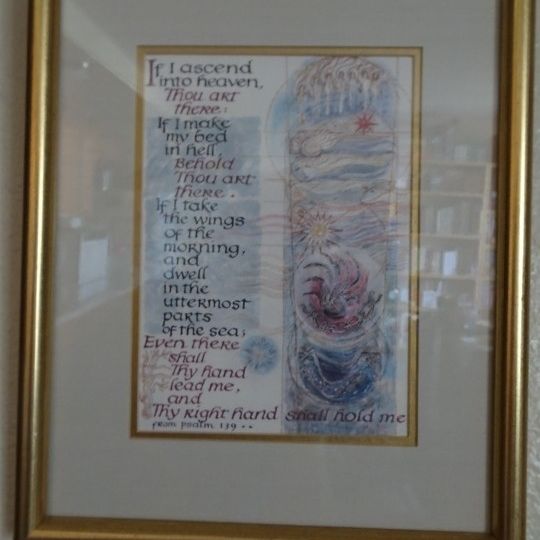 If I ascend
into heaven,
Thou art
there:
If I make
my bed
in hell,
Behold
Thou art
there.
If I take
the wings
of the
morning,
and
dwell
in the
uttermost
parts
of the sea;
Even there
shall
Thy hand
lead me,
and
Thy Right hand shall hold me
from psalm 139